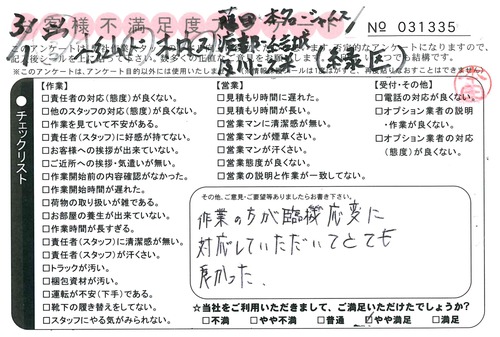 お客様不満足度
№ 031335
※このアンケートは、アンケート目的以外には使用いたしません。
チェックリスト
【作業】
□責任者の対応(態度)が良くない。
□他のスタッフの対応(態度)が良くない。
□作業を見ていて不安がある。
□責任者(スタッフ)に好感が持てない。
□お客様への挨拶が出来ていない。
□ご近所への挨拶・気遣いが無い。
□作業開始前の内容確認がなかった。
□作業開始時間が遅れた。
□荷物の取り扱いが雑である。
□お部屋の養生が出来ていない。
□作業時間が長すぎる。
□責任者(スタッフ)に清潔感が無い。
□責任者(スタッフ)が汗さい。
□トラックが汚い。
□梱包資材が汚い。
□運転が不安(下手)である。
□靴下の履き替えをしてない。
□スタッフにやる気がみられない。
【営業】
□見積もり時間に遅れた。
□見積もり時間が長い。
□営業マンに清潔感が無い。
□営業マンが煙草くさい。
□営業マンが汗くさい。
□営業態度が良くない。
□営業の説明と作業が一致してない。
【受付・その他】
□電話の対応が良くない。
□オプション業者の説明
・作業が良くない。
□オプション業者の対応
(態度)が良くない。
その他、ご意見・ご要望等ありましたらお書き下さい。
作業の方が臨機応変に
対応していただいてとても
良かった。
☆当社をご利用いただきまして、ご満足いただけたでしょうか?
□不満 □やや不満 □普通 ☑やや満足 □満足